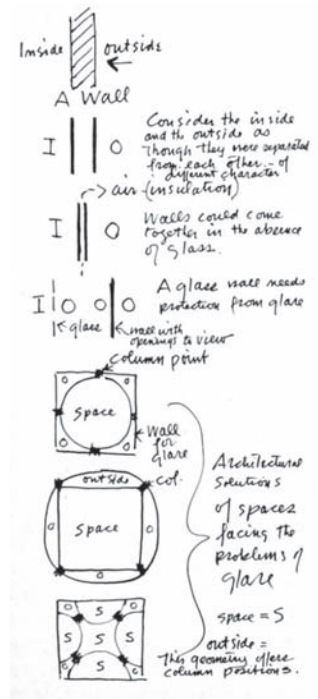 Inside outside
A Wall
Consider the inside
and the outside as
though they were separated
from each other – of
different character
I O
air (insulation)
I O
Walls could come
together in the absence
of glass.
I O O O
A glass wall needs
protection from glare
glass
wall with
openings to view
column point
O O
Space
O O
wall
for
glare
outside
col.
Space
O O
O
Architectural
Solutions
of spaces
facing the
problems of
glare
O S O
S S S
O S O
space = S
outside =
This geometry offers
column positions.